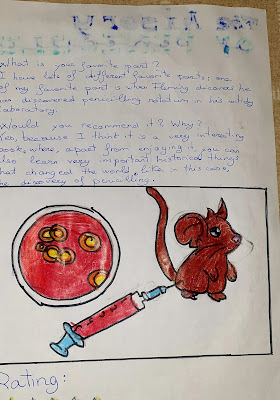 What is your favorite part?
I have lots of different favorite parts; one
of my favorite part is when Fleming discovers he
has discovered penicilling notatum in his untidy
laboratory.
Would you recommend it? Why?
Yes, because I think it is a very interesting
book, where, apart from enjoying it, you can
also learn very important historical things
that changed the world, like in this case,
the discovery of penicilling.
Rating: